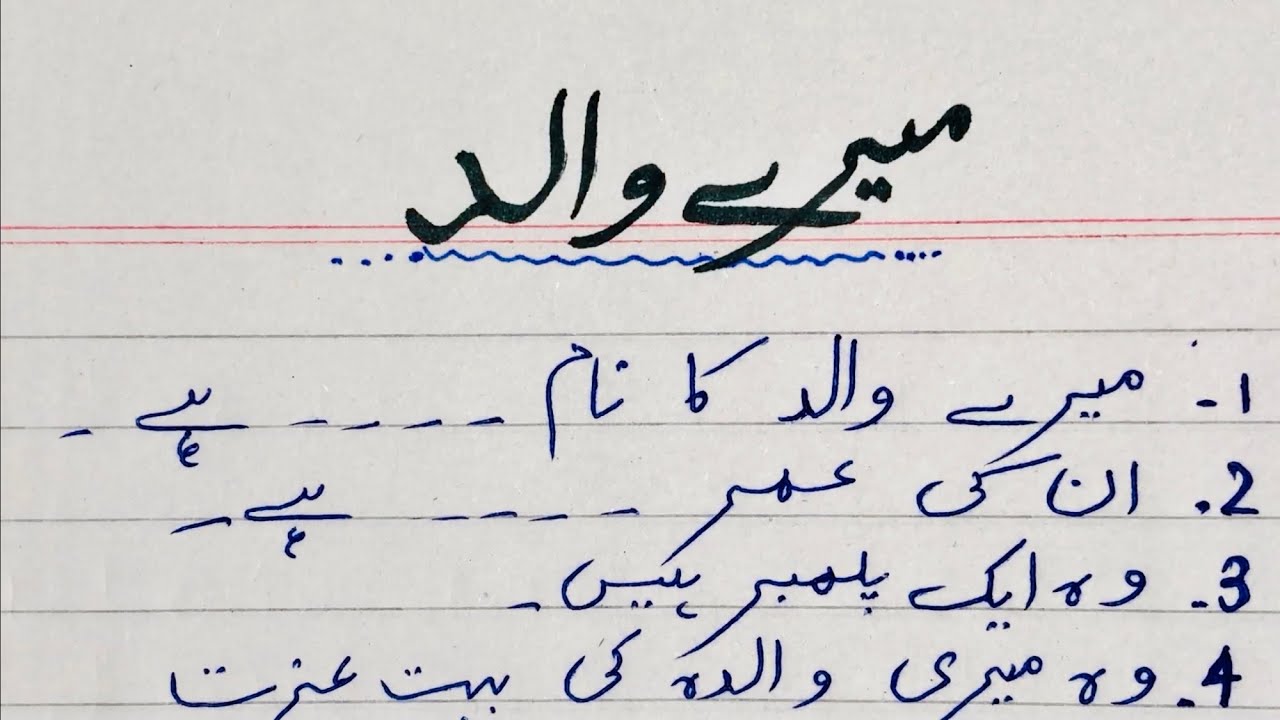 میرے والد
1. میرے والد کا نام ----- ہے۔
2. ان کی عمر ----- ہے۔
3. وہ ایک پلمبر ہیں۔
4. وہ میری والدہ کی بہت عزت